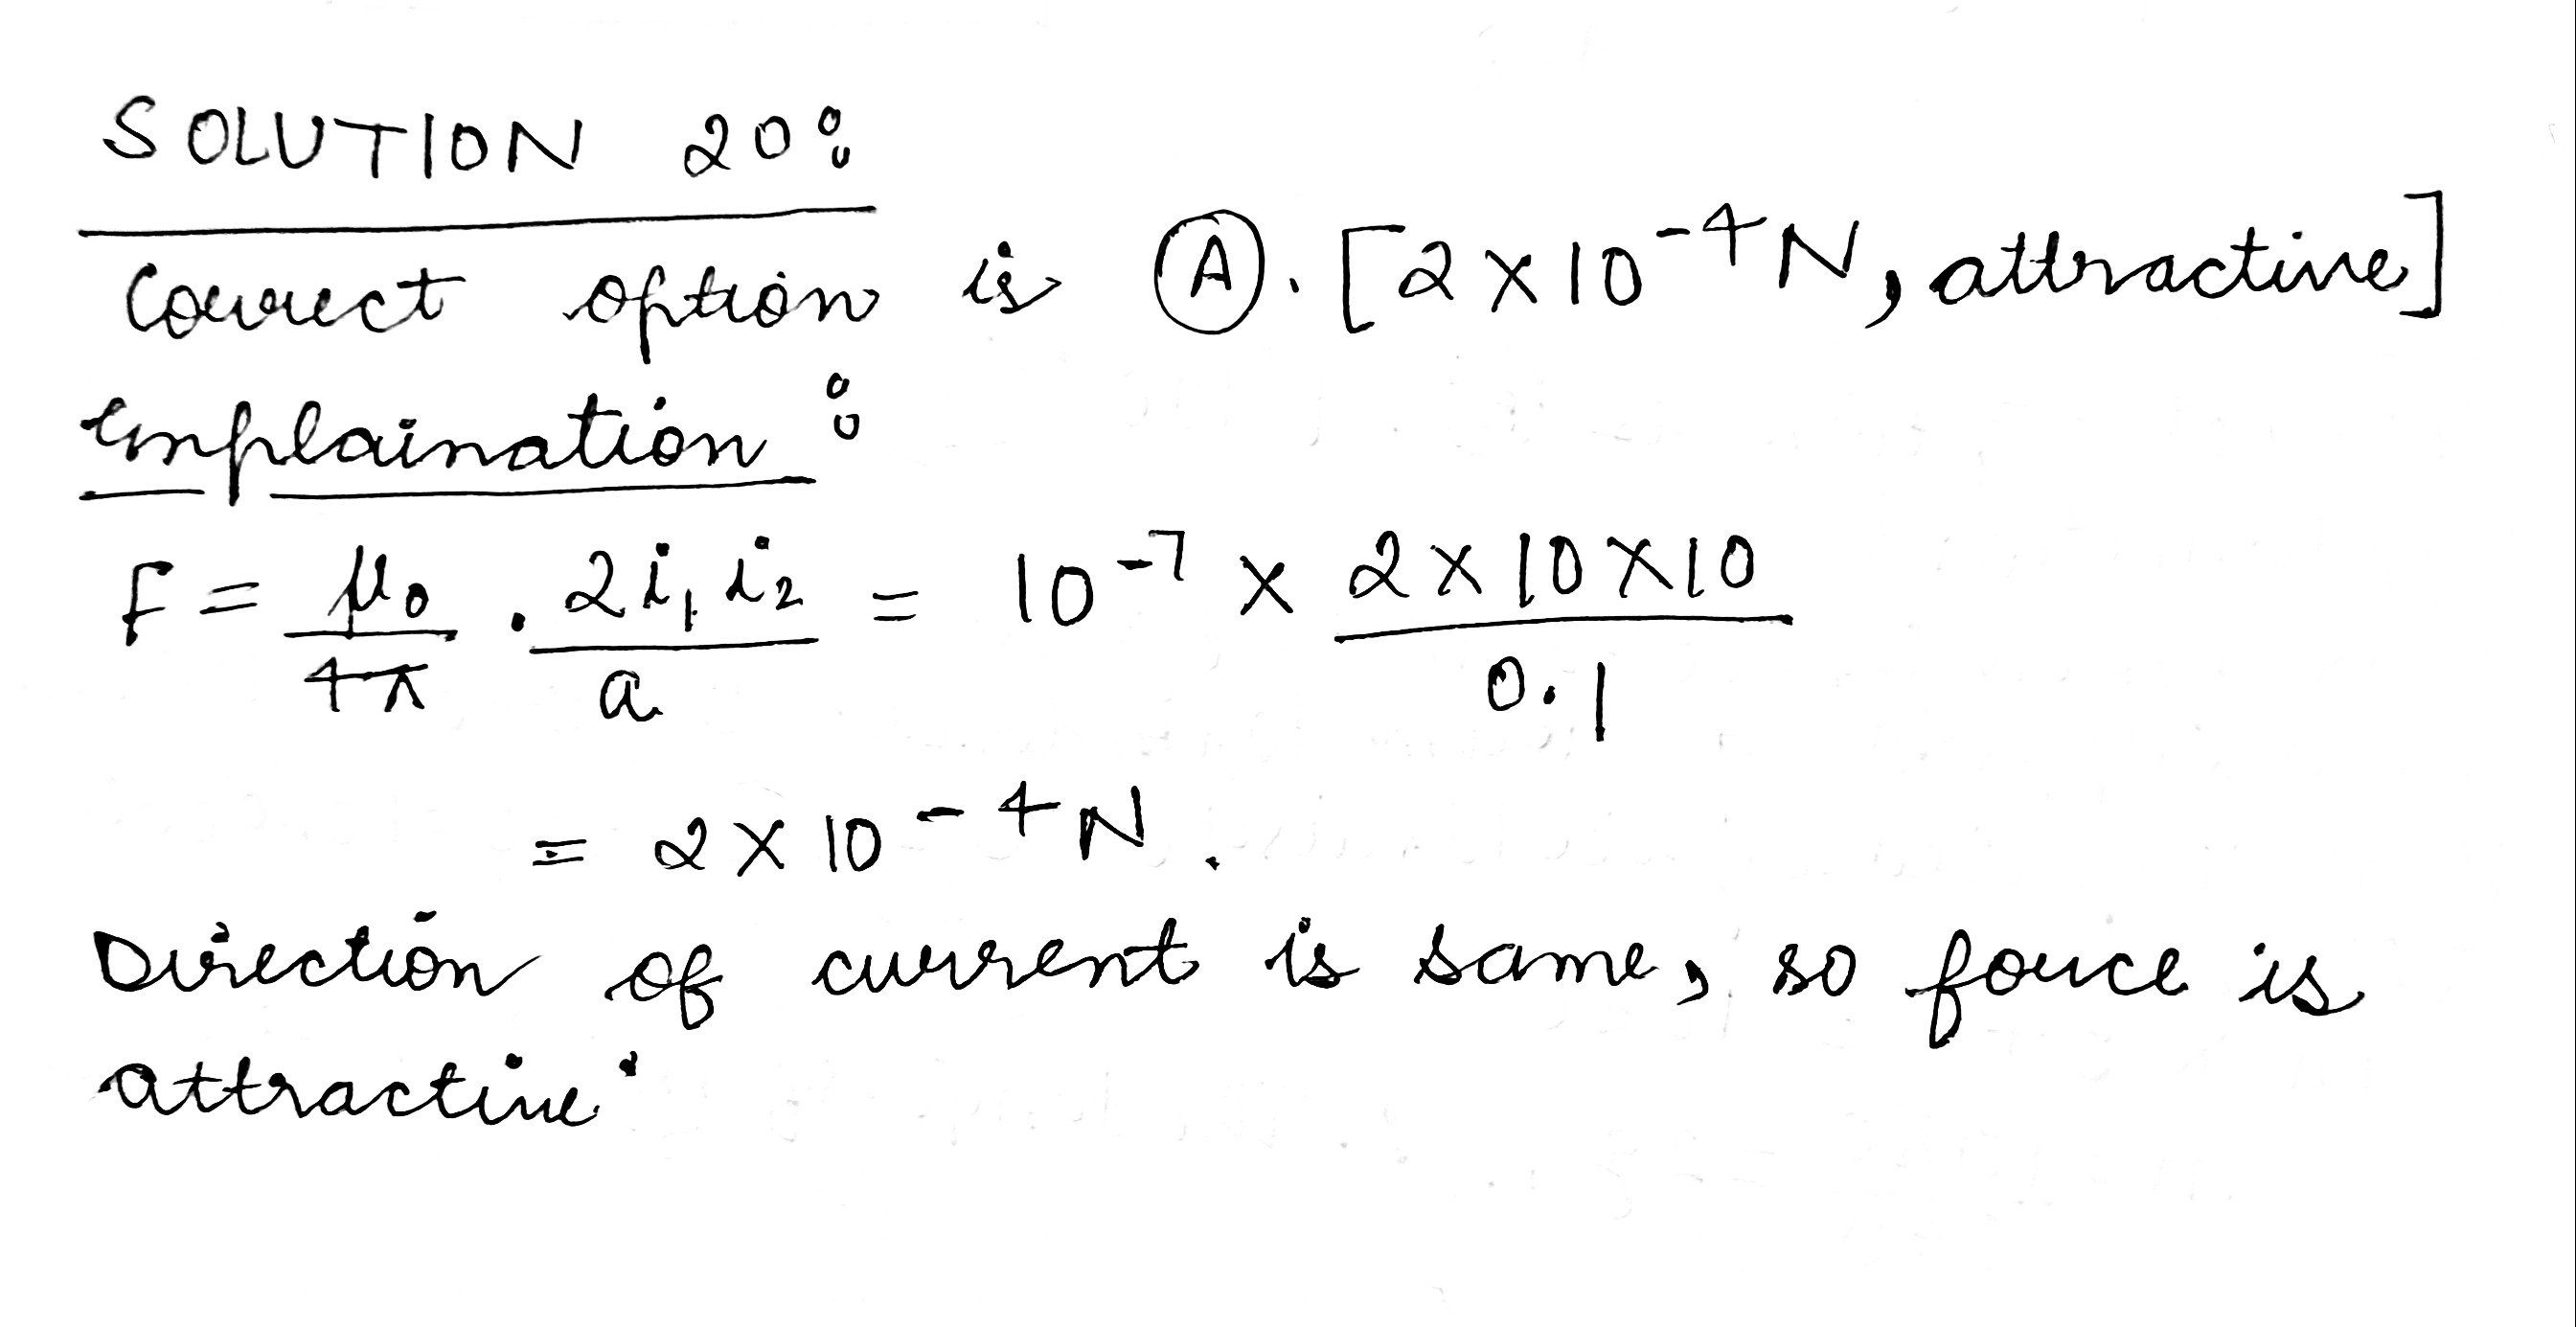 SOLUTION 20:
Correct option is (A). [2 × 10⁻⁴ N, attractive]
Explaination :
F = μ₀/4π . 2i₁i₂/a = 10⁻⁷ × 2×10×10/0.1
= 2 × 10⁻⁴ N.
Direction of current is same, so force is
attractive.